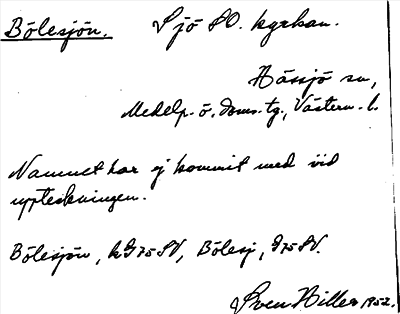 Bölesjön. Sjö SO. kyrkan.
Hässjö sn,
Medelp. ö. doms. tg., Västern. l.
Namnet har ej kommit med vid
uppteckningen.
Bölesjön, k G75SV, Bölesj, G75SV.
Sven Hiller 1952.